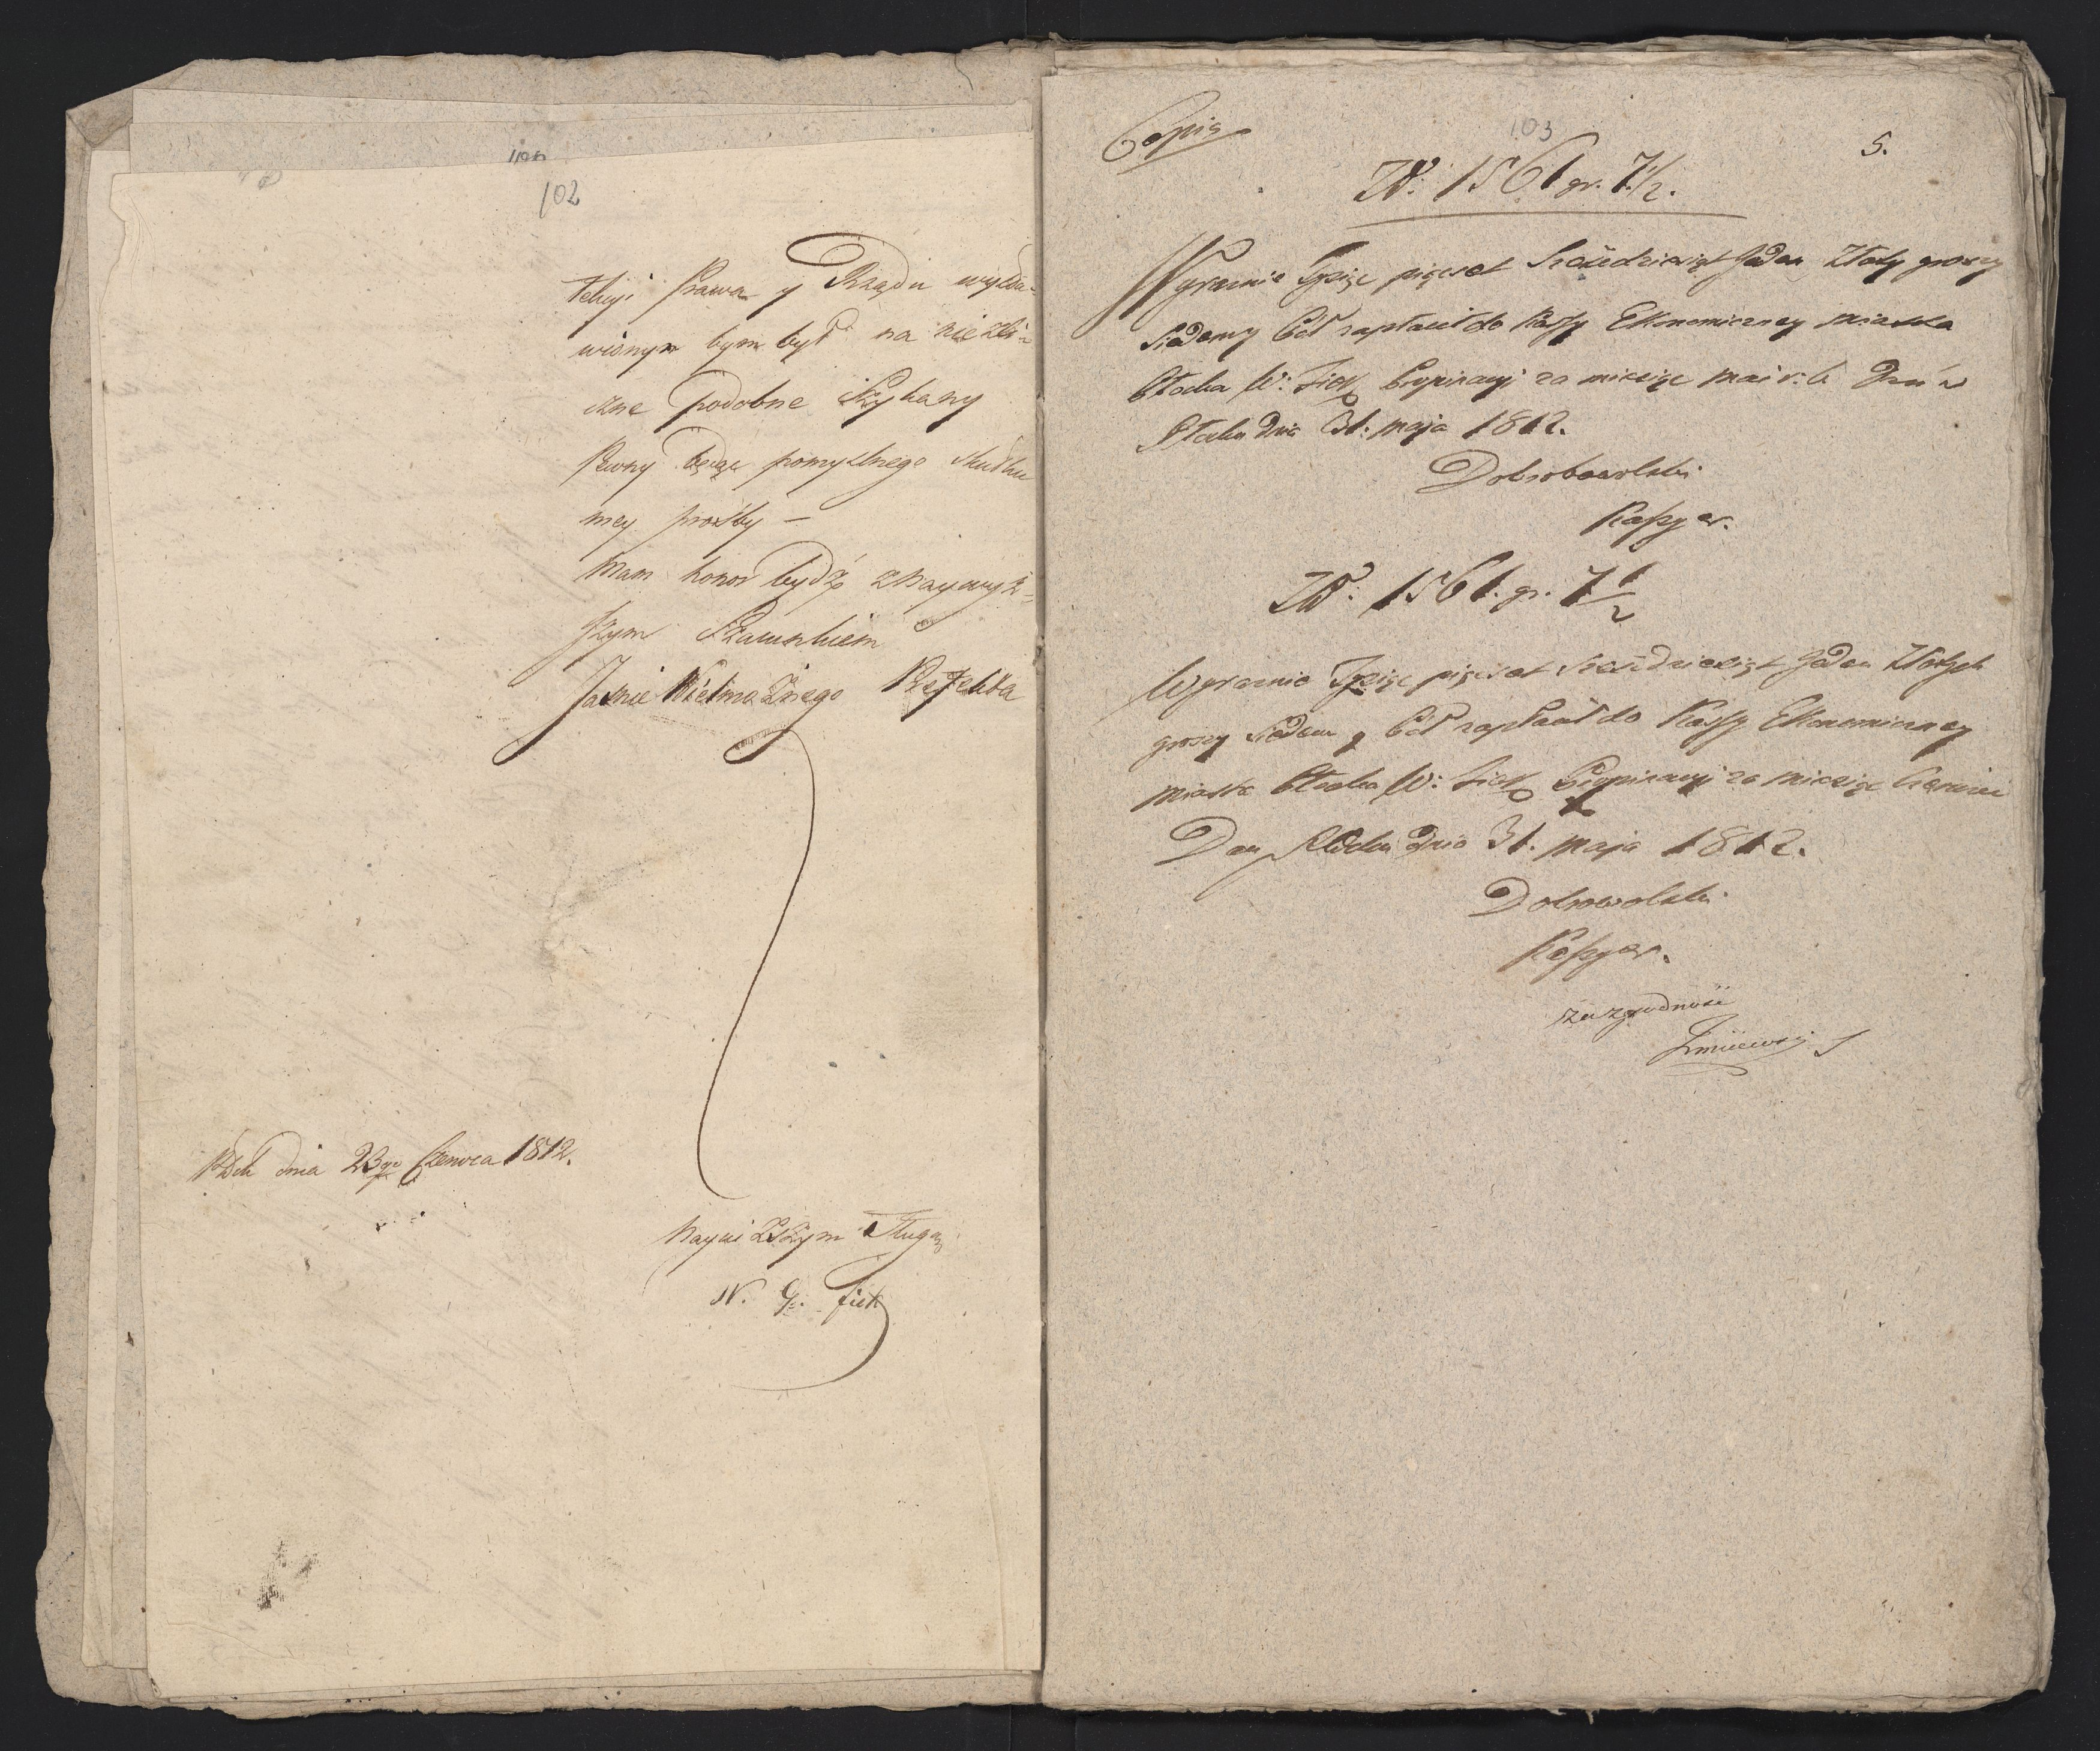 102
tekcyi Prawa y Rządu wysta-
wionym bym był na nie zli-
czne podobne Szykany
Pewny będąc pomyslnego skutku
mey prozby —
Mam honor bydź z naywyż-
szym Szacunkiem
Jasnie Wielmożnego Prefekta
Płock dnia 23go Czerwca 1812.
Nayniższym Sługą
N. G. Fick
Copia
103
5.
Zł: 1561 gr. 7½.
Wyraznie Tysiąc pięcset Szesdziesiąt Jeden Złoty groszy
siedemy pół zapłacił do Kassy Ekonomiczney miasta
Płocka W: Fick Propinacyi za miesiąc Mai r: b Dań w
Płocku dnia 31: maja 1812.
Dobrowolski
Kassyer.
Zł: 1561. gr. 7½
Wyraznie Tysiąc pięcset Szesdziesiąt Jeden Złotych
groszy siedem y pół zapłacił do Kassy Ekonomiczney
miasta Płocka W: Fick Propinacyi za miesiąc Czerwiec
Dan w Płocku dnia 31. maja 1812.
Dobrowolski
Kassyer.
za zgodność